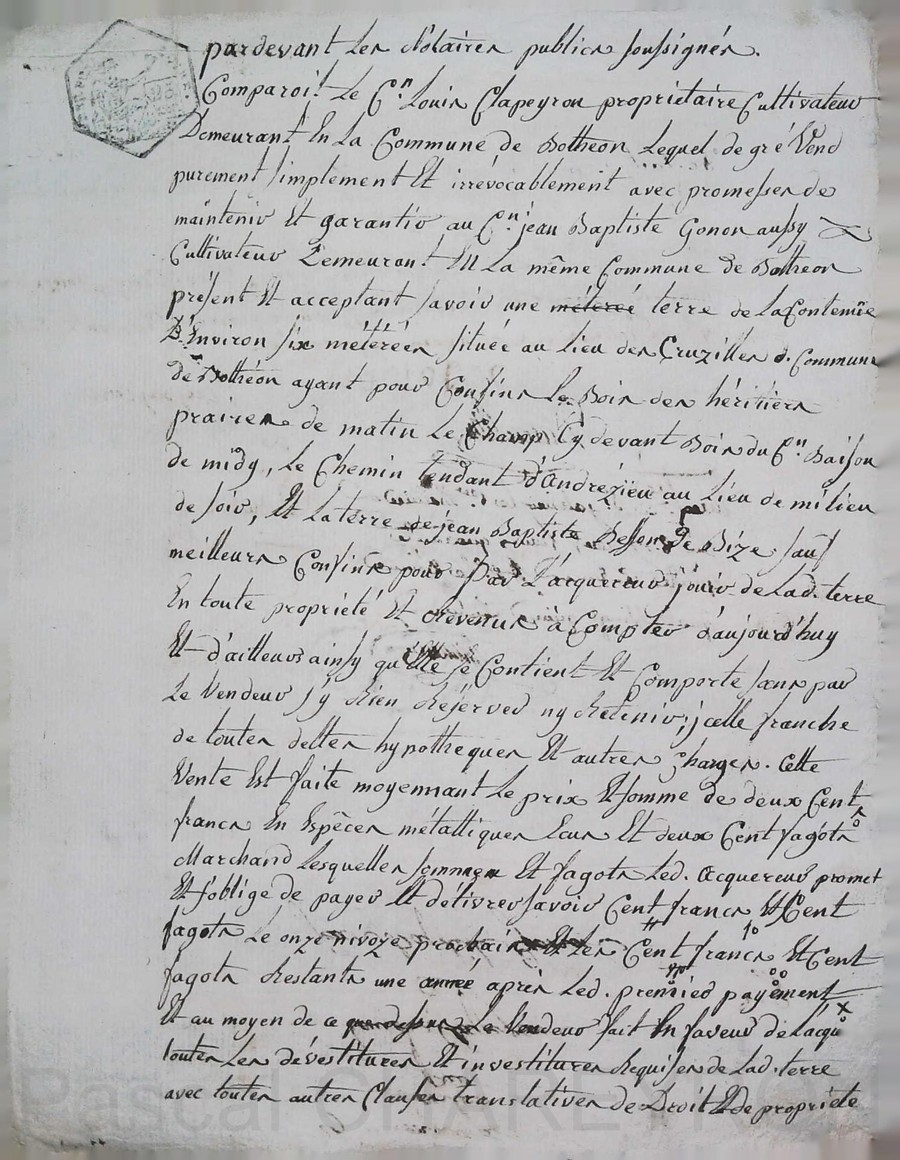 pardevant Les Notaires publics soussignés.
Comparoit Le C.en Louis Clapeyron propriétaire Cultivateur
Demeurant En La Commune de Botheon Lequel de gré Vend
purement simplement Et irrévocablement avec promesses de
maintenir Et garantir au C.en jean Baptiste Gonon aussy
Cultivateur Demeurant En La même Commune de Botheon
présent Et acceptant savoir une méterée terre de La Contenüe
D'Environ six métérées située au Lieu des Cruzilles d. Commune
de Bothéon ayant pour Confins Le Bois des héritiers
praires de matin Le Champ Cy devant Bois du C.en Baison
de midy, Le Chemin tendant d'Andrézieu au Lieu de milieu
de soir, Et La terre de jean Baptiste Besson De Bize sauf
meilleurs Confins pour Par L'acquereur jouir de Lad. terre
En toute propriété Et revenus à Compter d'aujourd'huy
Et d'ailleurs ainsy qu'Elle se Contient Et Comporte sans par
Le Vendeur s'y Rien Réserver ny Retenir; jcelle franche
de toutes dettes hypotheques Et autres Charges. Cette
Vente Est faite moyennant Le prix Et somme de deux Cents
francs En Espêces métalliques Ecus Et deux Cent fagots
Marchand Lesquelles sommes Et fagots Led. Acquereur promet
Et s'oblige de payer Et délivrer savoir Cent francs Et Cent
fagots Le onze nivoze prochain Et Les Cent francs Et Cent
fagots Restants une année après Led. premier payement
Et au moyen de ce que dessus Le Vendeur fait En faveur de L'acqu
toutes Les dévestitures Et investitures Requises de Lad. terre
avec toutes autres Clauses translatives de Droit Et de propriété